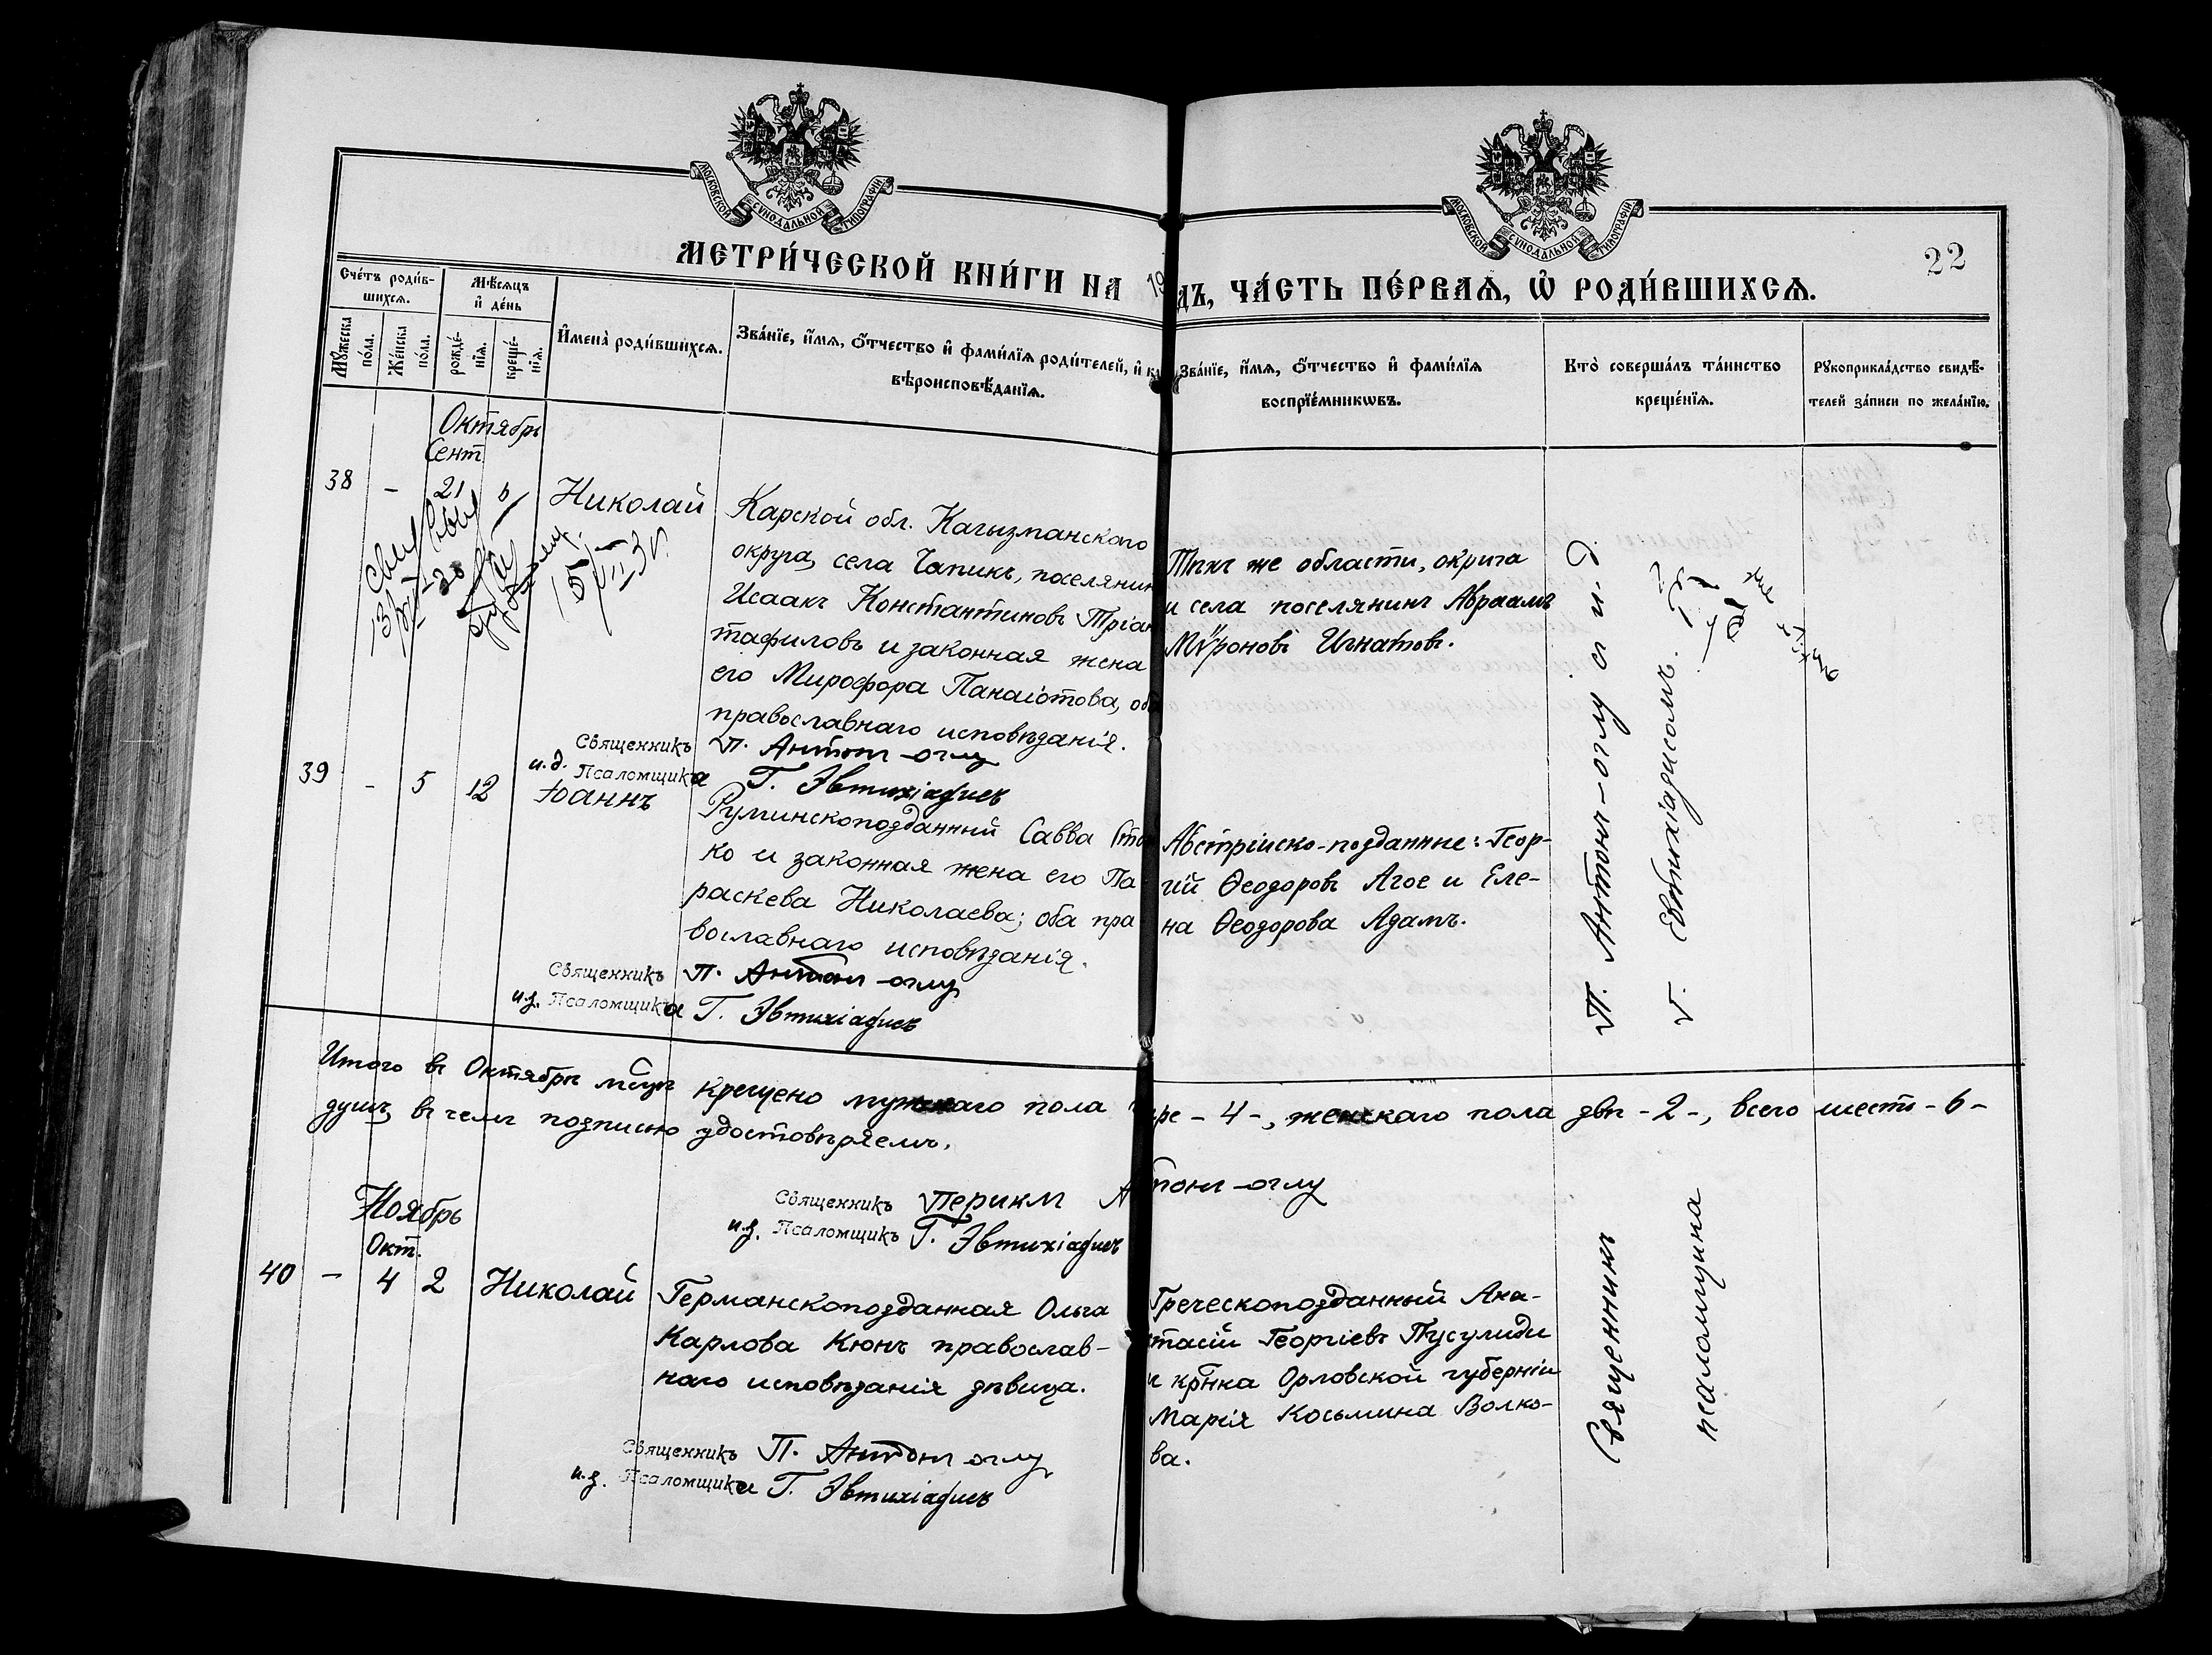 МОСКОВСКОЙ СѴНОДАЛЬНОЙ ТИПОГРАФІИ
МОСКОВСКОЙ СѴНОДАЛЬНОЙ ТИПОГРАФІИ
22
МЕТРИ́ЧЕСКОЙ КНИ́ГИ НА 19
ДЪ, ЧА́СТЬ ПЕ́РВАѦ, Ѡ҆ РОДИ́ВШИХСѦ.
Сче́тъ роди́в-
шихсѧ.
Мѣ́сѧцъ
и҆ де́нь
Мꙋ́жеска
по́ла.
Же́нска
по́ла.
рожде́-
нїѧ.
креще́-
нїѧ.
И҆мена̀ роди́вшихсѧ.
Зва́нїе, и҆́мѧ, ѻ҆́тчество и҆ фами́лїѧ роди́телей, и҆ к
вѣроисповѣ́данїѧ.
Зва́нїе, и҆́мѧ, ѻ҆́тчество и҆ фами́лїѧ
воспрїе́мникѡвъ.
Кто̀ соверша́лъ та́инство
креще́нїѧ.
Рꙋкоприкла́дство свидѣ́-
телей за́писи по жела́нїю.
Октябрь
Сент.
38 - 21 Николай
Карской обл. Кагызманскаго
округа, села Чапикъ, поселянин
Исаакъ Константиновъ Тріан
тафиловъ и законная жена
его Мирофора Панаіотова, об
православнаго исповѣданія.
Тѣхъ же области, округа
и села поселянинъ Авраамъ
Мѵроновъ Игнатовъ.
Священникъ П. Антонъ-оглу
и.д. Псаломщика Г. Эвтихіадисъ
39 - 5 12 Іоаннъ
Румынскоподданный Савва Сто
ко и законная жена его Па
раскева Николаева; оба пра
вославнаго исповѣданія.
Австрійско-подданные: Геор-
гій Ѳеодоровъ Агое и Еле-
на Ѳеодорова Адамъ.
Священникъ П. Антонъ-оглу
и.д. Псаломщика Г. Эвтихіадисъ
П. Антонъ-оглу с и. д.
Г. Евтихіадисомъ.
Итого въ Октябрѣ мсцѣ крещено мужскаго пола
ре - 4 -, женскаго пола двѣ - 2 -, всего шесть - 6 -
душъ, въ чемъ подписью удостовѣряемъ.
Священникъ А
тонъ-оглу
и.д. Псаломщикъ Г. Эвтихіадисъ
Ноябрь
Окт.
40 - 4 2 Николай
Германскоподданная Ольга
Карлова Кюнъ православ-
наго исповѣданія дѣвица.
Греческоподданный Ана-
стасій Георгіевъ Тусулиди
и крнка Орловской губерніи
Марія Косьмина Волко-
ва.
Священникъ
псаломщика
Священникъ П. Антонъ-оглу
и.д. Псаломщика Г. Эвтихіадисъ